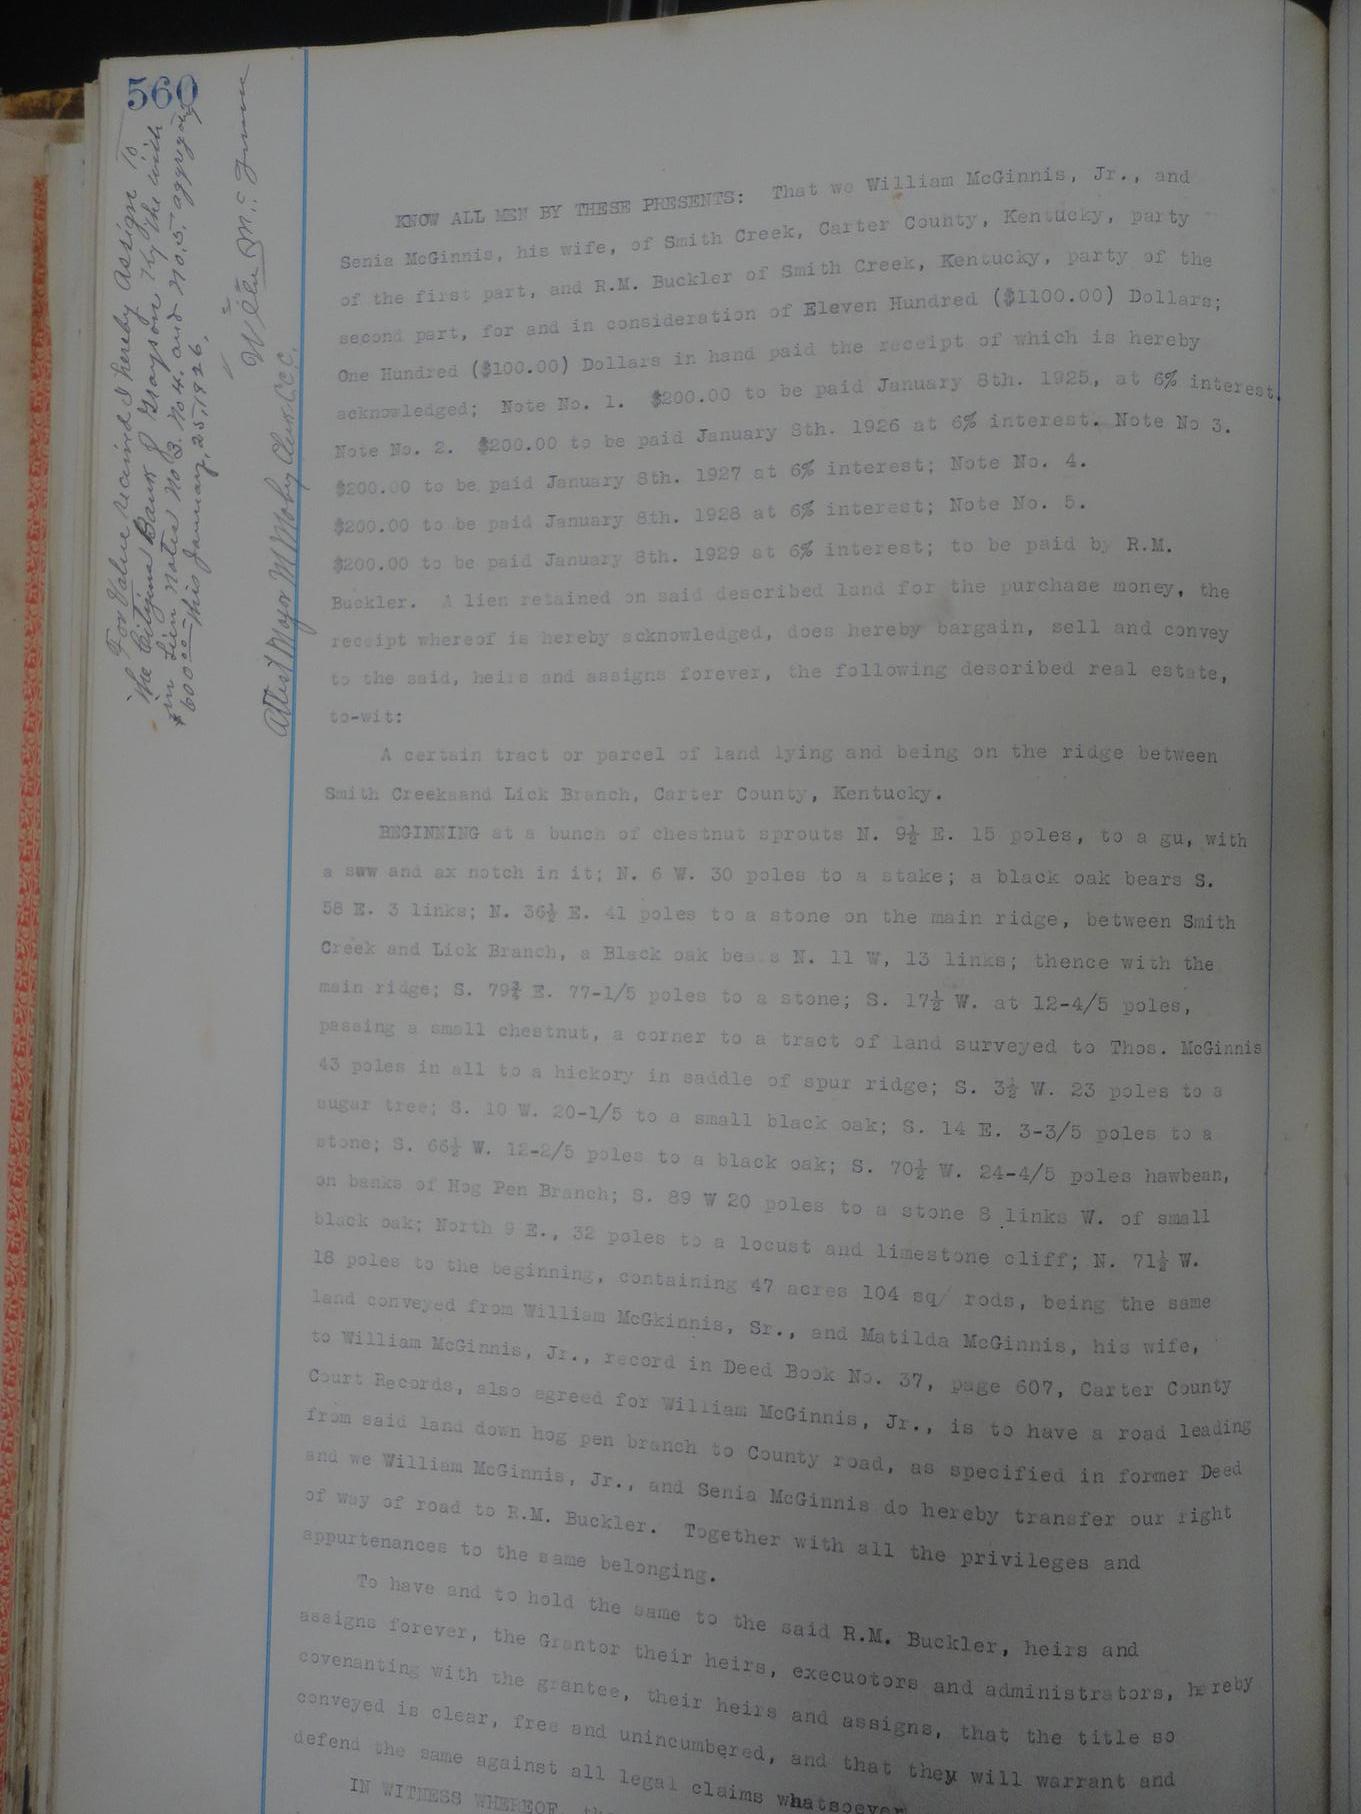 560
For Value recieved I hereby Assign to
the Citizens Bank of Grayson Ky the with
in lien notes No 3. No 4. and No. 5. aggregating
$600.00 this January, 25, 1926.
Attest Major M Mobly Clerk C.C.C.
KNOW ALL MEN BY THESE PRESENTS: That we William McGinnis, Jr., and
Senia McGinnis, his wife, of Smith Creek, Carter County, Kentucky, party
of the first part, and R.M. Buckler of Smith Creek, Kentucky, party of the
second part, for and in consideration of Eleven Hundred ($1100.00) Dollars;
One Hundred ($100.00) Dollars in hand paid the receipt of which is hereby
acknowledged; Note No. 1. $200.00 to be paid January 8th. 1925, at 6% interest.
Note No. 2. $200.00 to be paid January 8th. 1926 at 6% interest. Note No 3.
$200.00 to be paid January 8th. 1927 at 6% interest; Note No. 4.
$200.00 to be paid January 8th. 1928 at 6% interest; Note No. 5.
$200.00 to be paid January 8th. 1929 at 6% interest; to be paid by R.M.
Buckler. A lien retained on said described land for the purchase money, the
receipt whereof is hereby acknowledged, does hereby bargain, sell and convey
to the said, heirs and assigns forever, the following described real estate,
to-wit:
A certain tract or parcel of land lying and being on the ridge between
Smith Creekaand Lick Branch, Carter County, Kentucky.
BEGINNING at a bunch of chestnut sprouts N. 9½ E. 15 poles, to a gu, with
a sww and ax notch in it; N. 6 W. 30 poles to a stake; a black oak bears S.
58 E. 3 links; N. 36½ E. 41 poles to a stone on the main ridge, between Smith
Creek and Lick Branch, a Black oak bears N. 11 W, 13 links; thence with the
main ridge; S. 79¾ E. 77-1/5 poles to a stone; S. 17½ W. at 12-4/5 poles,
passing a small chestnut, a corner to a tract of land surveyed to Thos. McGinnis
43 poles in all to a hickory in saddle of spur ridge; S. 3½ W. 23 poles to a
sugar tree; S. 10 W. 20-1/5 to a small black oak; S. 14 E. 3-3/5 poles to a
stone; S. 66½ W. 12-2/5 poles to a black oak; S. 70½ W. 24-4/5 poles hawbean,
on banks of Hog Pen Branch; S. 89 W 20 poles to a stone 8 links W. of small
black oak; North 9 E., 32 poles to a locust and limestone cliff; N. 71½ W.
18 poles to the beginning, containing 47 acres 104 sq/ rods, being the same
land conveyed from William McGkinnis, Sr., and Matilda McGinnis, his wife,
to William McGinnis, Jr., record in Deed Book No. 37, page 607, Carter County
Court Records, also agreed for William McGinnis, Jr., is to have a road leading
from said land down hog pen branch to County road, as specified in former Deed
and we William McGinnis, Jr., and Senia McGinnis do hereby transfer our right
of way of road to R.M. Buckler. Together with all the privileges and
appurtenances to the same belonging.
To have and to hold the same to the said R.M. Buckler, heirs and
assigns forever, the Grantor their heirs, execuotors and administrators, hereby
covenanting with the grantee, their heirs and assigns, that the title so
conveyed is clear, free and unincumbered, and that they will warrant and
defend the same against all legal claims whatsoever
IN WITNESS WHEREOF,